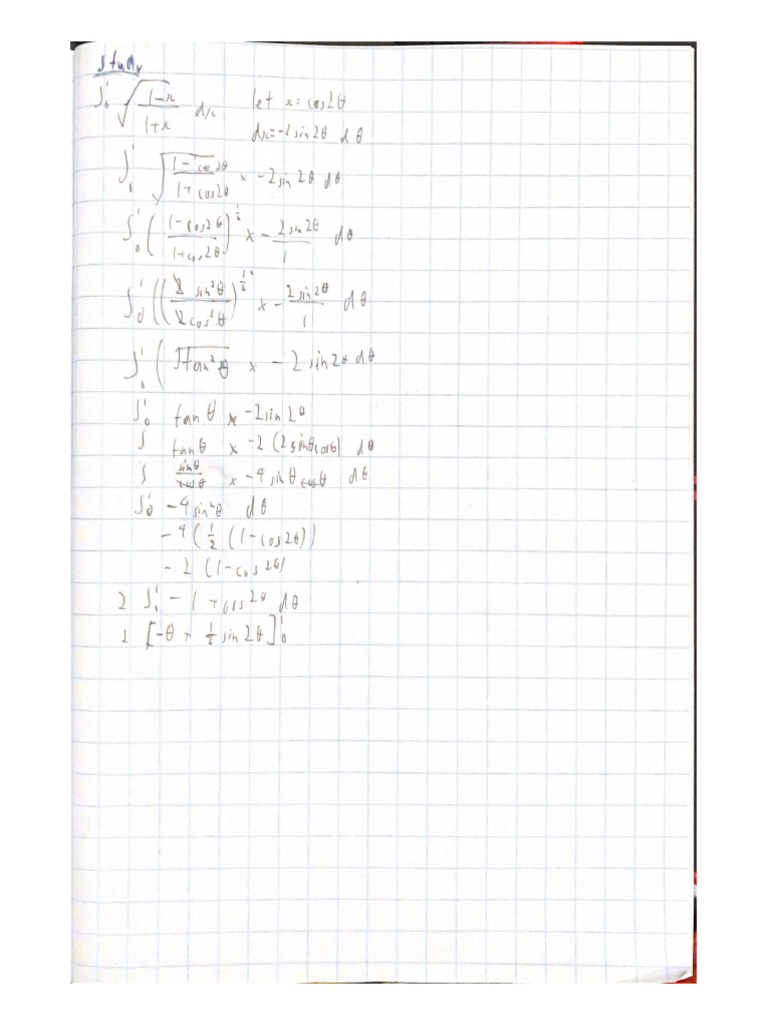 Study
∫₀¹ √((1-x)/(1+x)) dx let x = cos2θ
dx = -2sin2θ dθ
∫₀¹ √((1-cos2θ)/(1+cos2θ)) × -2sin2θ dθ
∫₀¹ ((1-cos2θ)/(1+cos2θ))^(1/2) × -2sin2θ/1 dθ
∫₀¹ ((2sin²θ/2cos²θ)^(1/2) × -2sin2θ/1 dθ
∫₀¹ (√tan²θ × -2sin2θ dθ
∫₀¹ tanθ × -2sin2θ
∫ tanθ × -2(2sinθcosθ) dθ
∫ sinθ/cosθ × -4sinθcosθ dθ
∫₀¹ -4sin²θ dθ
-4(1/2(1-cos2θ))
-2(1-cos2θ)
2 ∫₀¹ -1+cos2θ dθ
2 [-θ + 1/2 sin2θ]₀¹